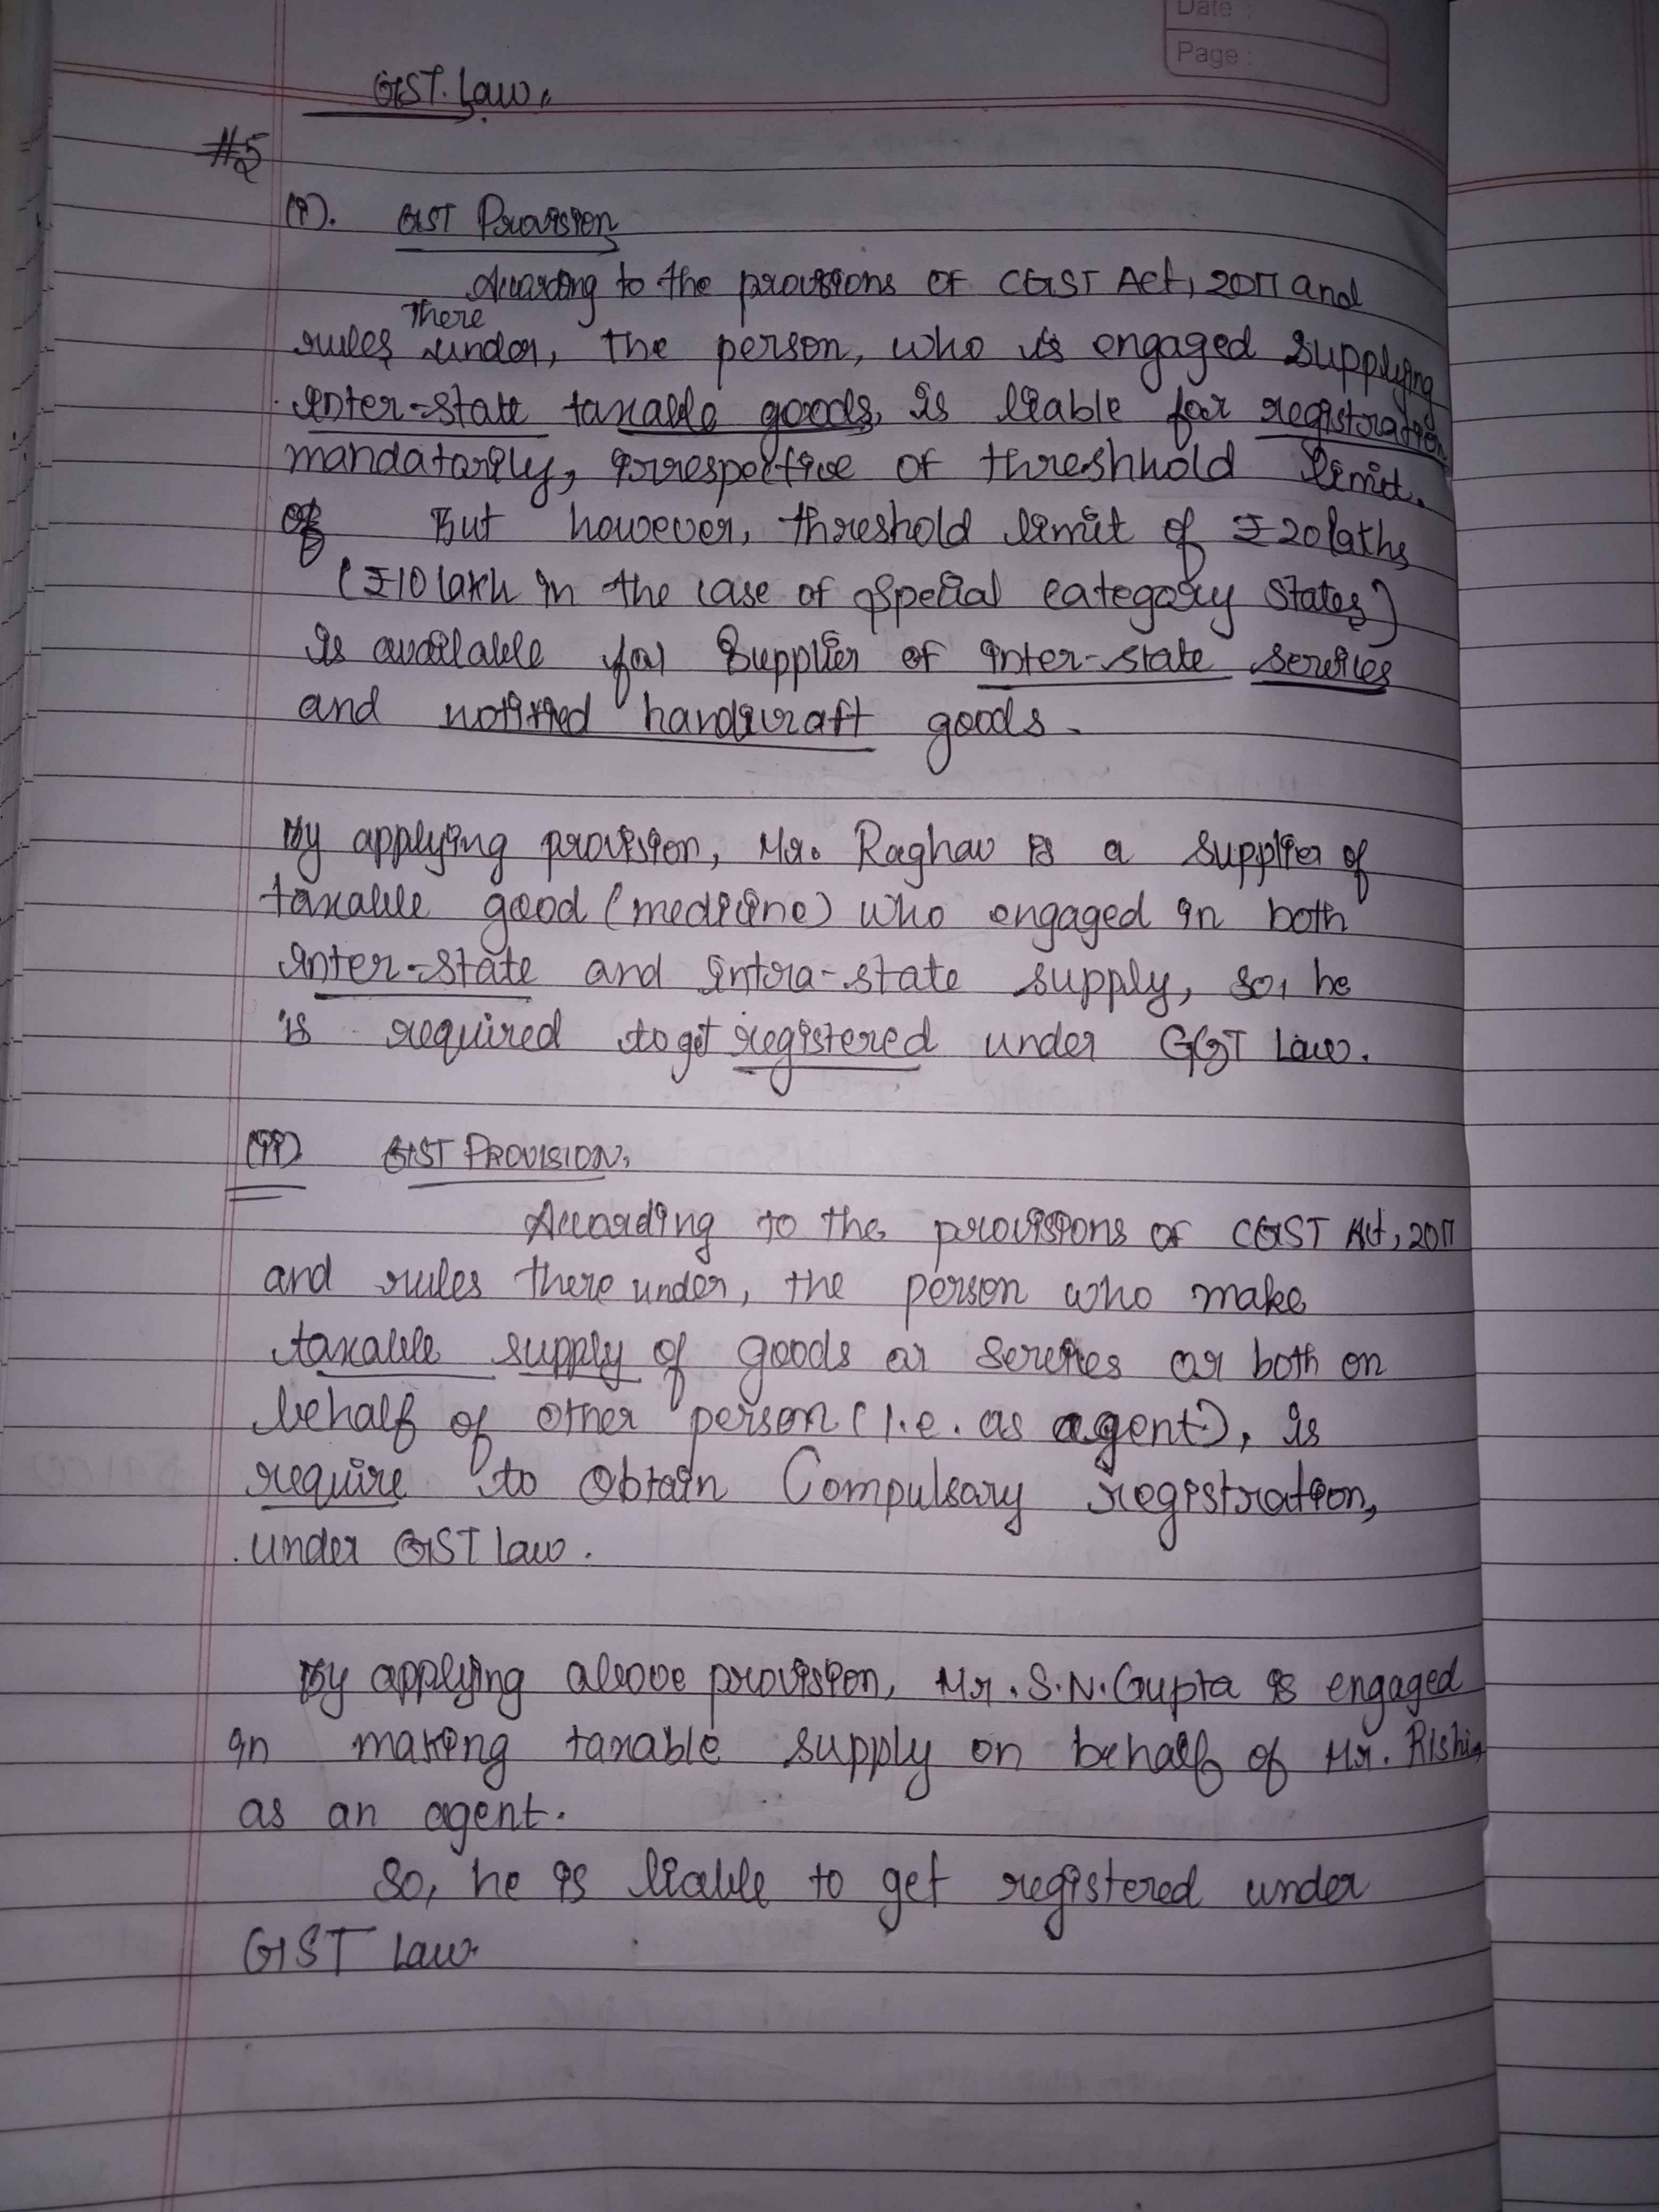 Date :
Page :
GST. Law.
#5
(i). GST Provision
According to the provisions of CGST Act, 2017 and
There
rules under, the person, who is engaged supplying
inter-state taxable goods, is liable for registration
mandatorily, irrespective of threshhold limit.
But however, threshold limit of ₹20 lakhs
(₹10 lakh in the case of special category States)
is available for Supplier of inter-state services
and notified handicraft goods.
By applying provision, Mr. Raghav is a supplier of
taxable good (medicine) who engaged in both
inter-state and intra-state supply, so, he
is required to get registered under GST Law.
(ii) GST PROVISION.
According to the provisions of CGST Act, 2017
and rules there under, the person who make
taxable supply of goods or services or both on
behalf of other person (i.e. as agent), is
require to obtain Compulsory registration,
under GST law.
By applying above provision, Mr. S.N. Gupta is engaged
in making taxable supply on behalf of Mr. Rishi,
as an agent.
So, he is liable to get registered under
GST Law.